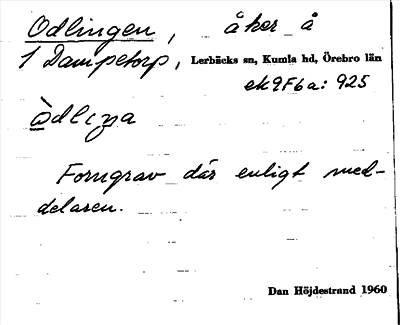 Odlingen, åker å
1 Dampetorp, Lerbäcks sn, Kumla hd, Örebro län
ek9F6a: 925
òdlıŋa
Forngrav där enligt med-
delaren.
Dan Höjdestrand 1960